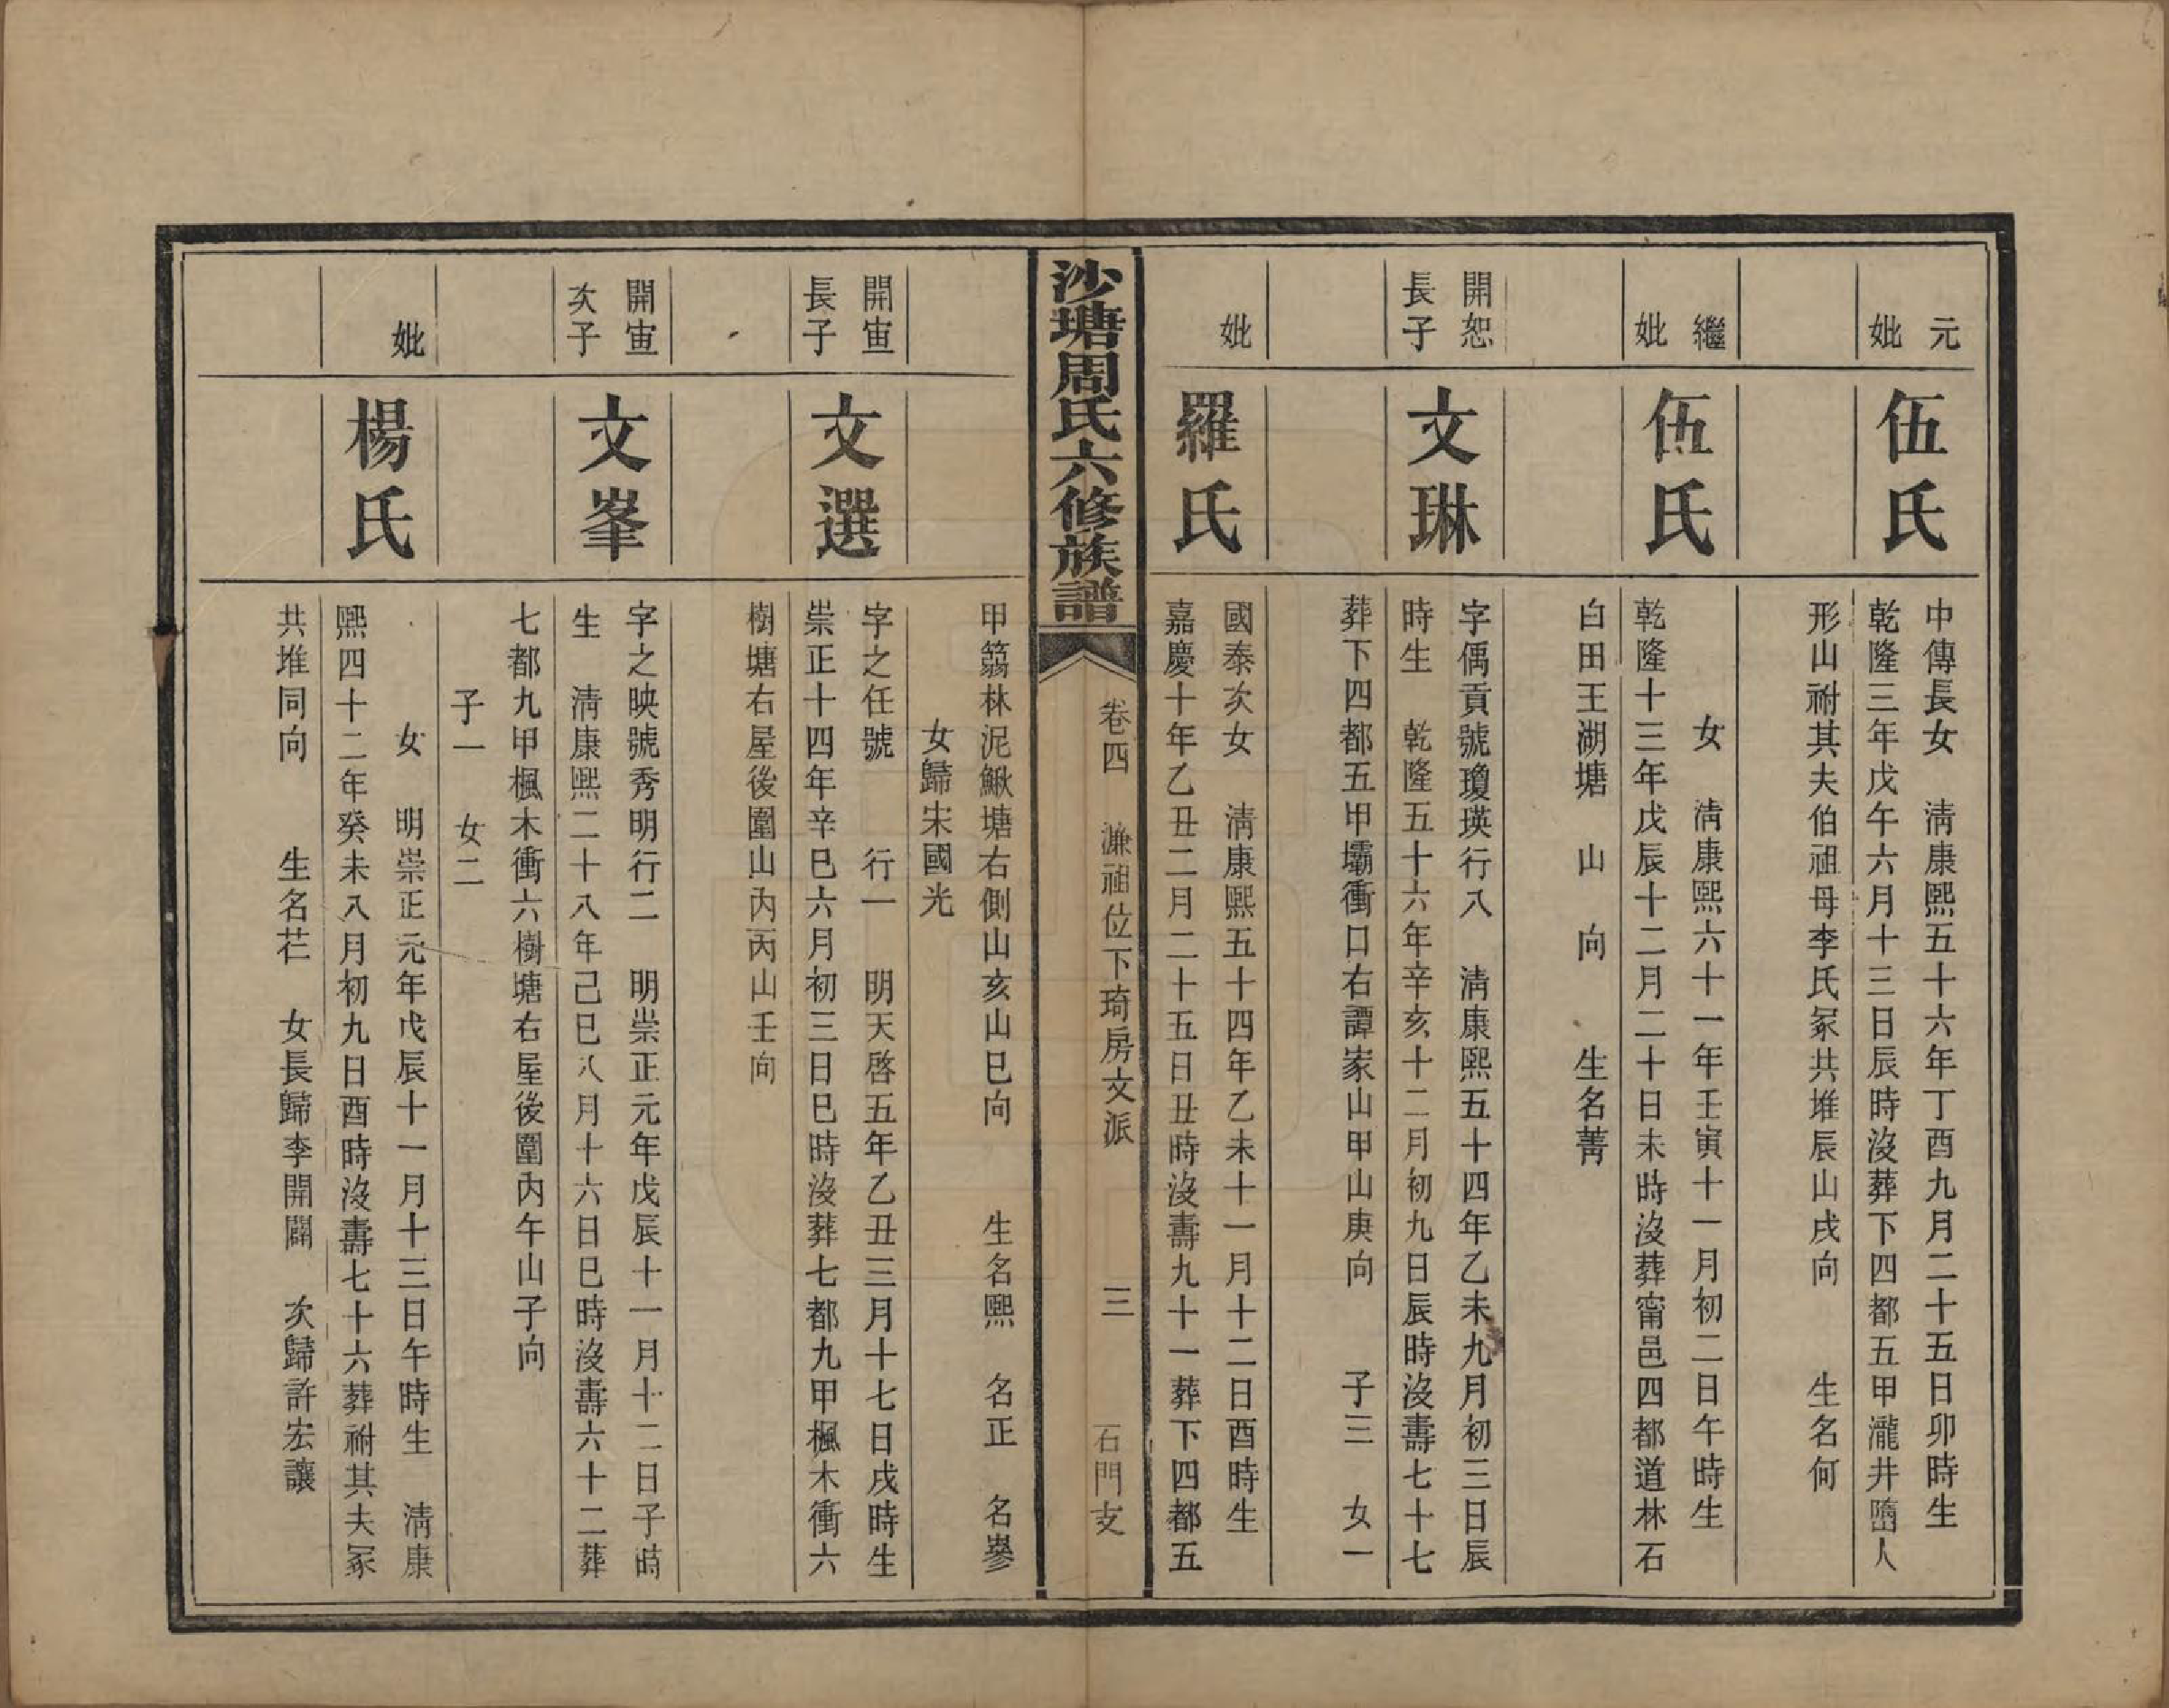 元
妣
伍氏
中傳長女　淸康熙五十六年丁酉九月二十五日卯時生
乾隆三年戊午六月十三日辰時沒葬下四都五甲瀧井墮人
形山祔其夫伯祖母李氏冢共堆辰山戌向　　生名何
繼
妣
伍氏
女　淸康熙六十一年壬寅十一月初二日午時生
乾隆十三年戊辰十二月二十日未時沒葬甯邑四都道林石
白田王湖塘　山　向　　生名菁
開恕
長子
文琳
字偶貢號瓊瑛行八　淸康熙五十四年乙未九月初三日辰
時生　乾隆五十六年辛亥十二月初九日辰時沒壽七十七
葬下四都五甲壩衝口右譚家山甲山庚向　　子三　女一
妣
羅氏
國泰次女　淸康熙五十四年乙未十一月十二日酉時生
嘉慶十年乙丑二月二十五日丑時沒壽九十一葬下四都五
沙塘周氏六修族譜
卷四　濂祖位下琦房文派　　三　　石門支
甲䈂林泥鰍塘右側山亥山巳向　　生名熙　名正　名㟥
女歸宋國光
開宙
長子
文選
字之任號　　行一　明天啓五年乙丑三月十七日戌時生
崇正十四年辛巳六月初三日巳時沒葬七都九甲楓木衝六
樹塘右屋後圍山內丙山壬向
開宙
次子
文峯
字之映號秀明行二　明崇正元年戊辰十一月十二日子時
生　淸康熙二十八年己巳八月十六日巳時沒壽六十二葬
七都九甲楓木衝六樹塘右屋後圍內午山子向
子一　女二
妣
楊氏
女　明崇正元年戊辰十一月十三日午時生　淸康
熙四十二年癸未八月初九日酉時沒壽七十六葬祔其夫冢
共堆同向　　生名芢　女長歸李開闢　次歸許宏讓